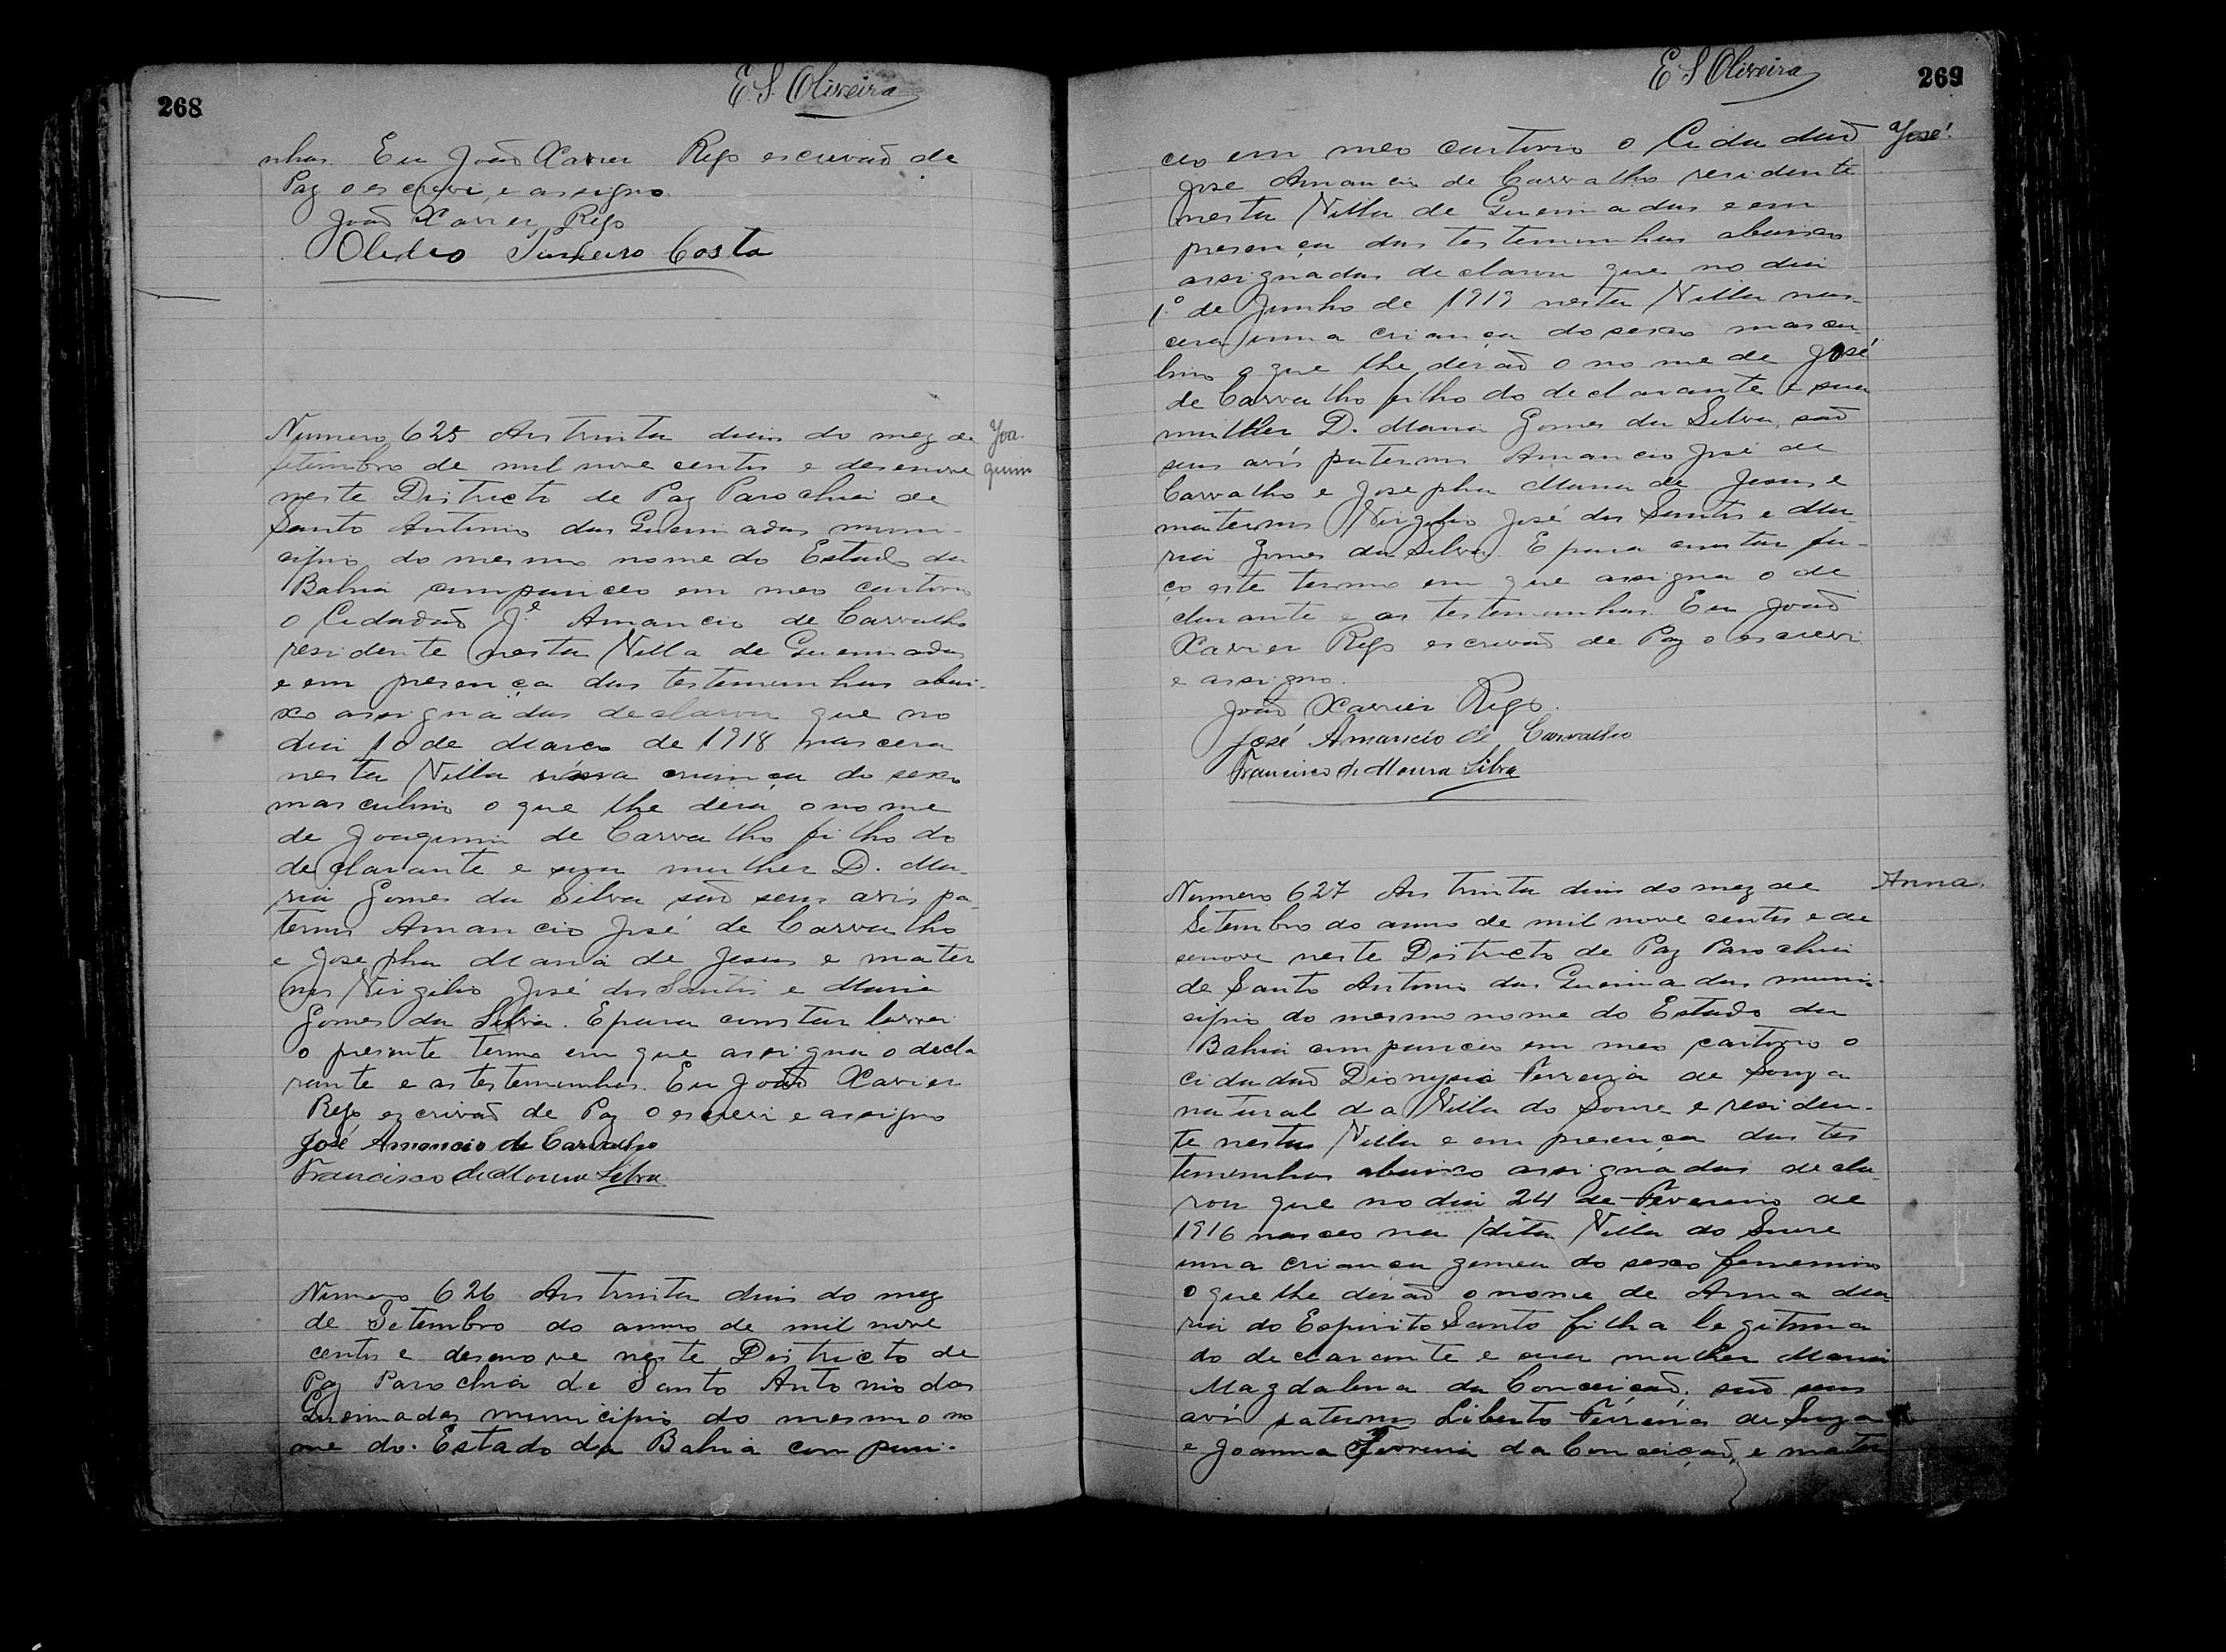 268
E. S. Oliveira
nhas. Eu João Xavier Rego escrivaõ de
Paz o escrevi, e assigno.
João Xavier Rego
Olidio Pinheiro Costa
Numero 625 Aos trinta dias do mez de
Joa-
quim
Setembro de mil nove centos e desenove
neste Districto de Paz Parochia de
Santo Antonio das Queimadas muni-
cipio do mesmo nome do Estado da
Bahia compareceo em meo cartorio
o Cidadaõ J.e Amancio de Carvalho
residente nesta Villa de Queimadas
e em presença das testemunhas abai-
xo assignadas declarou que no
dia 10 de Março de 1918 nascera
nesta Villa uma criança do sexo
masculino o que lhe dera o nome
de Joaquim de Carvalho filho do
declarante e sua mulher D. Ma-
ria Gomes da Silva saõ seus avós pa-
ternos Amancio José de Carvalho
e Josepha Maria de Jesus e mater
nos Virgilio José dos Santos e Maria
Gomes da Silva. E para constar lavrei
o presente termo em que assigna o decla
rante e as testemunhas. Eu João Xavier
Rego escrivaõ de Paz o escrevi e assigno
José Amancio de Carvalho
Francisco de Moura Silva
Numero 626 Aos trinta dias do mez
de Setembro do anno de mil nove
centos e desenove neste Districto de
Paz Parochia de Santo Antonio das
Queimadas municipio do mesmo no
me do Estado da Bahia compare-
E S Oliveira
269
José
ceo em meo cartorio o Cidadaõ
José Amancio de Carvalho residente
nesta Villa de Queimadas e em
presença das testemunhas abaixo
assignadas declarou que no dia
1.º de Junho de 1919 nesta Villa nas-
cera uma criança do sexo mascu-
lino o que lhe deraõ o nome de José
de Carvalho filho do declarante e sua
mulher D. Maria Gomes da Silva, saõ
seus avós paternos Amancio José de
Carvalho e Josepha Maria de Jesus e
maternos Virgilio José dos Santos e Ma-
ria Gomes da Silva. E para constar fa-
ço este termo em que assigna o de
clarante e as testemunhas. Eu João
Xavier Rego escrivaõ de Paz o escrevi
e assigno.
João Xavier Rego.
José Amancio de Carvalho
Francisco de Moura Silva
Numero 627 Aos trinta dias do mez de
Anna.
Setembro do anno de mil nove centos e de
senove neste Districto de Paz Parochia
de Santo Antonio das Queimadas muni-
cipio do mesmo nome do Estado da
Bahia compareceo em meo cartorio o
cidadaõ Dionysio Ferreira de Souza
natural da Villa do Soure e residen-
te nesta Villa e em presença das tes
temunhas abaixo assignadas decla-
rou que no dia 24 de Fevereiro de
1916 nasceo na dita Villa do Soure
uma criança gemea do sexo femenino
o que lhe deraõ o nome de Anna Ma-
ria do Espirito Santo filha legitima
do declarante e sua mulher Maria
Magdalena da Conceiçaõ. saõ seus
avós paternos Liberto Ferreira de Souza
e Joanna Ferreira da Conceiçaõ, e mater